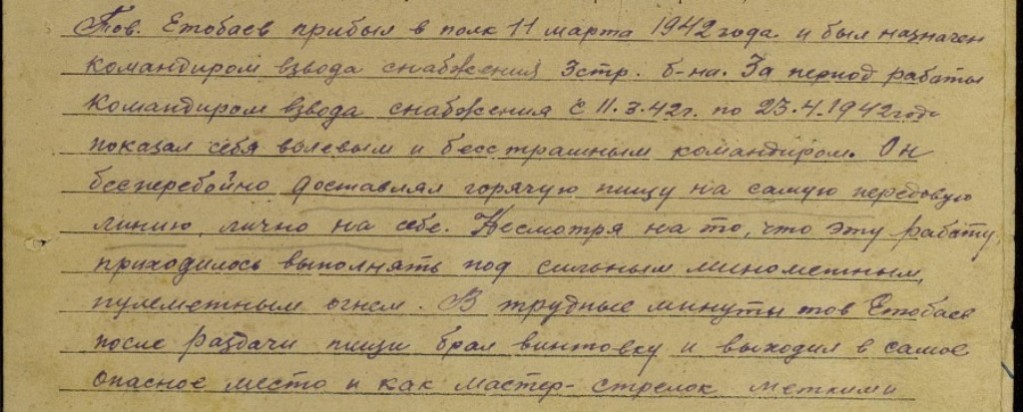 Тов. Етобаев прибыл в полк 11 марта 1942 года и был назначен
командиром взвода снабжения 3 стр. б-на. За период работы
командиром взвода снабжения с 11.3.42г. по 23.4.1942 года
показал себя волевым и бесстрашным командиром. Он
бесперебойно доставлял горячую пищу на самую передовую
линию, лично на себе. Несмотря на то, что эту работу,
приходилось выполнять под сильным минометным,
пулеметным огнем. В трудные минуты тов Етобаев
после раздачи пищи брал винтовку и выходил в самое
опасное место и как мастер-стрелок меткими